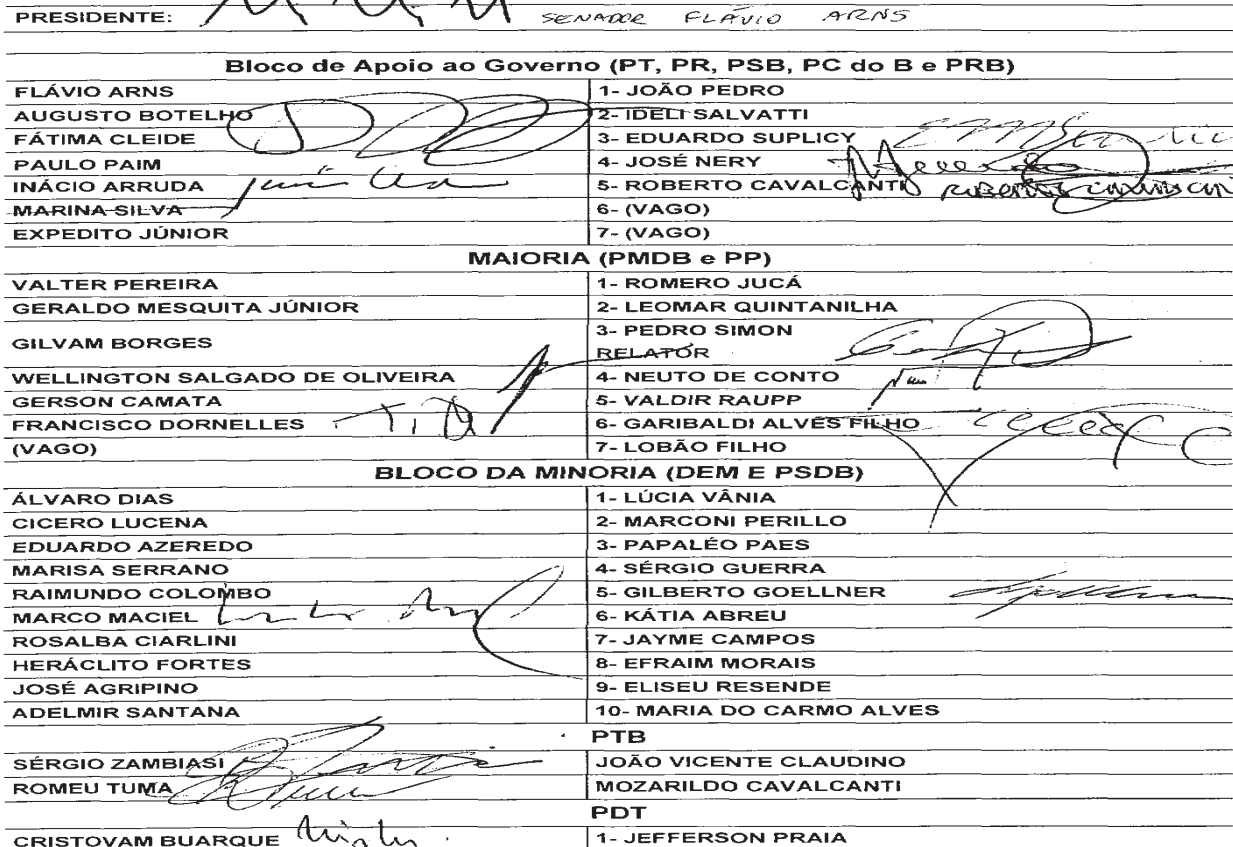 PRESIDENTE: SENADOR FLÁVIO ARNS
Bloco de Apoio ao Governo (PT, PR, PSB, PC do B e PRB)
FLÁVIO ARNS 1- JOÃO PEDRO
AUGUSTO BOTELHO 2- IDELI SALVATTI
FÁTIMA CLEIDE 3- EDUARDO SUPLICY
PAULO PAIM 4- JOSÉ NERY
INÁCIO ARRUDA 5- ROBERTO CAVALCANTI
MARINA SILVA 6- (VAGO)
EXPEDITO JÚNIOR 7- (VAGO)
MAIORIA (PMDB e PP)
VALTER PEREIRA 1- ROMERO JUCÁ
GERALDO MESQUITA JÚNIOR 2- LEOMAR QUINTANILHA
GILVAM BORGES 3- PEDRO SIMON
RELATOR
WELLINGTON SALGADO DE OLIVEIRA 4- NEUTO DE CONTO
GERSON CAMATA 5- VALDIR RAUPP
FRANCISCO DORNELLES 6- GARIBALDI ALVES FILHO
(VAGO) 7- LOBÃO FILHO
BLOCO DA MINORIA (DEM E PSDB)
ÁLVARO DIAS 1- LÚCIA VÂNIA
CICERO LUCENA 2- MARCONI PERILLO
EDUARDO AZEREDO 3- PAPALÉO PAES
MARISA SERRANO 4- SÉRGIO GUERRA
RAIMUNDO COLOMBO 5- GILBERTO GOELLNER
MARCO MACIEL 6- KÁTIA ABREU
ROSALBA CIARLINI 7- JAYME CAMPOS
HERÁCLITO FORTES 8- EFRAIM MORAIS
JOSÉ AGRIPINO 9- ELISEU RESENDE
ADELMIR SANTANA 10- MARIA DO CARMO ALVES
PTB
SÉRGIO ZAMBIASI JOÃO VICENTE CLAUDINO
ROMEU TUMA MOZARILDO CAVALCANTI
PDT
CRISTOVAM BUARQUE 1- JEFFERSON PRAIA